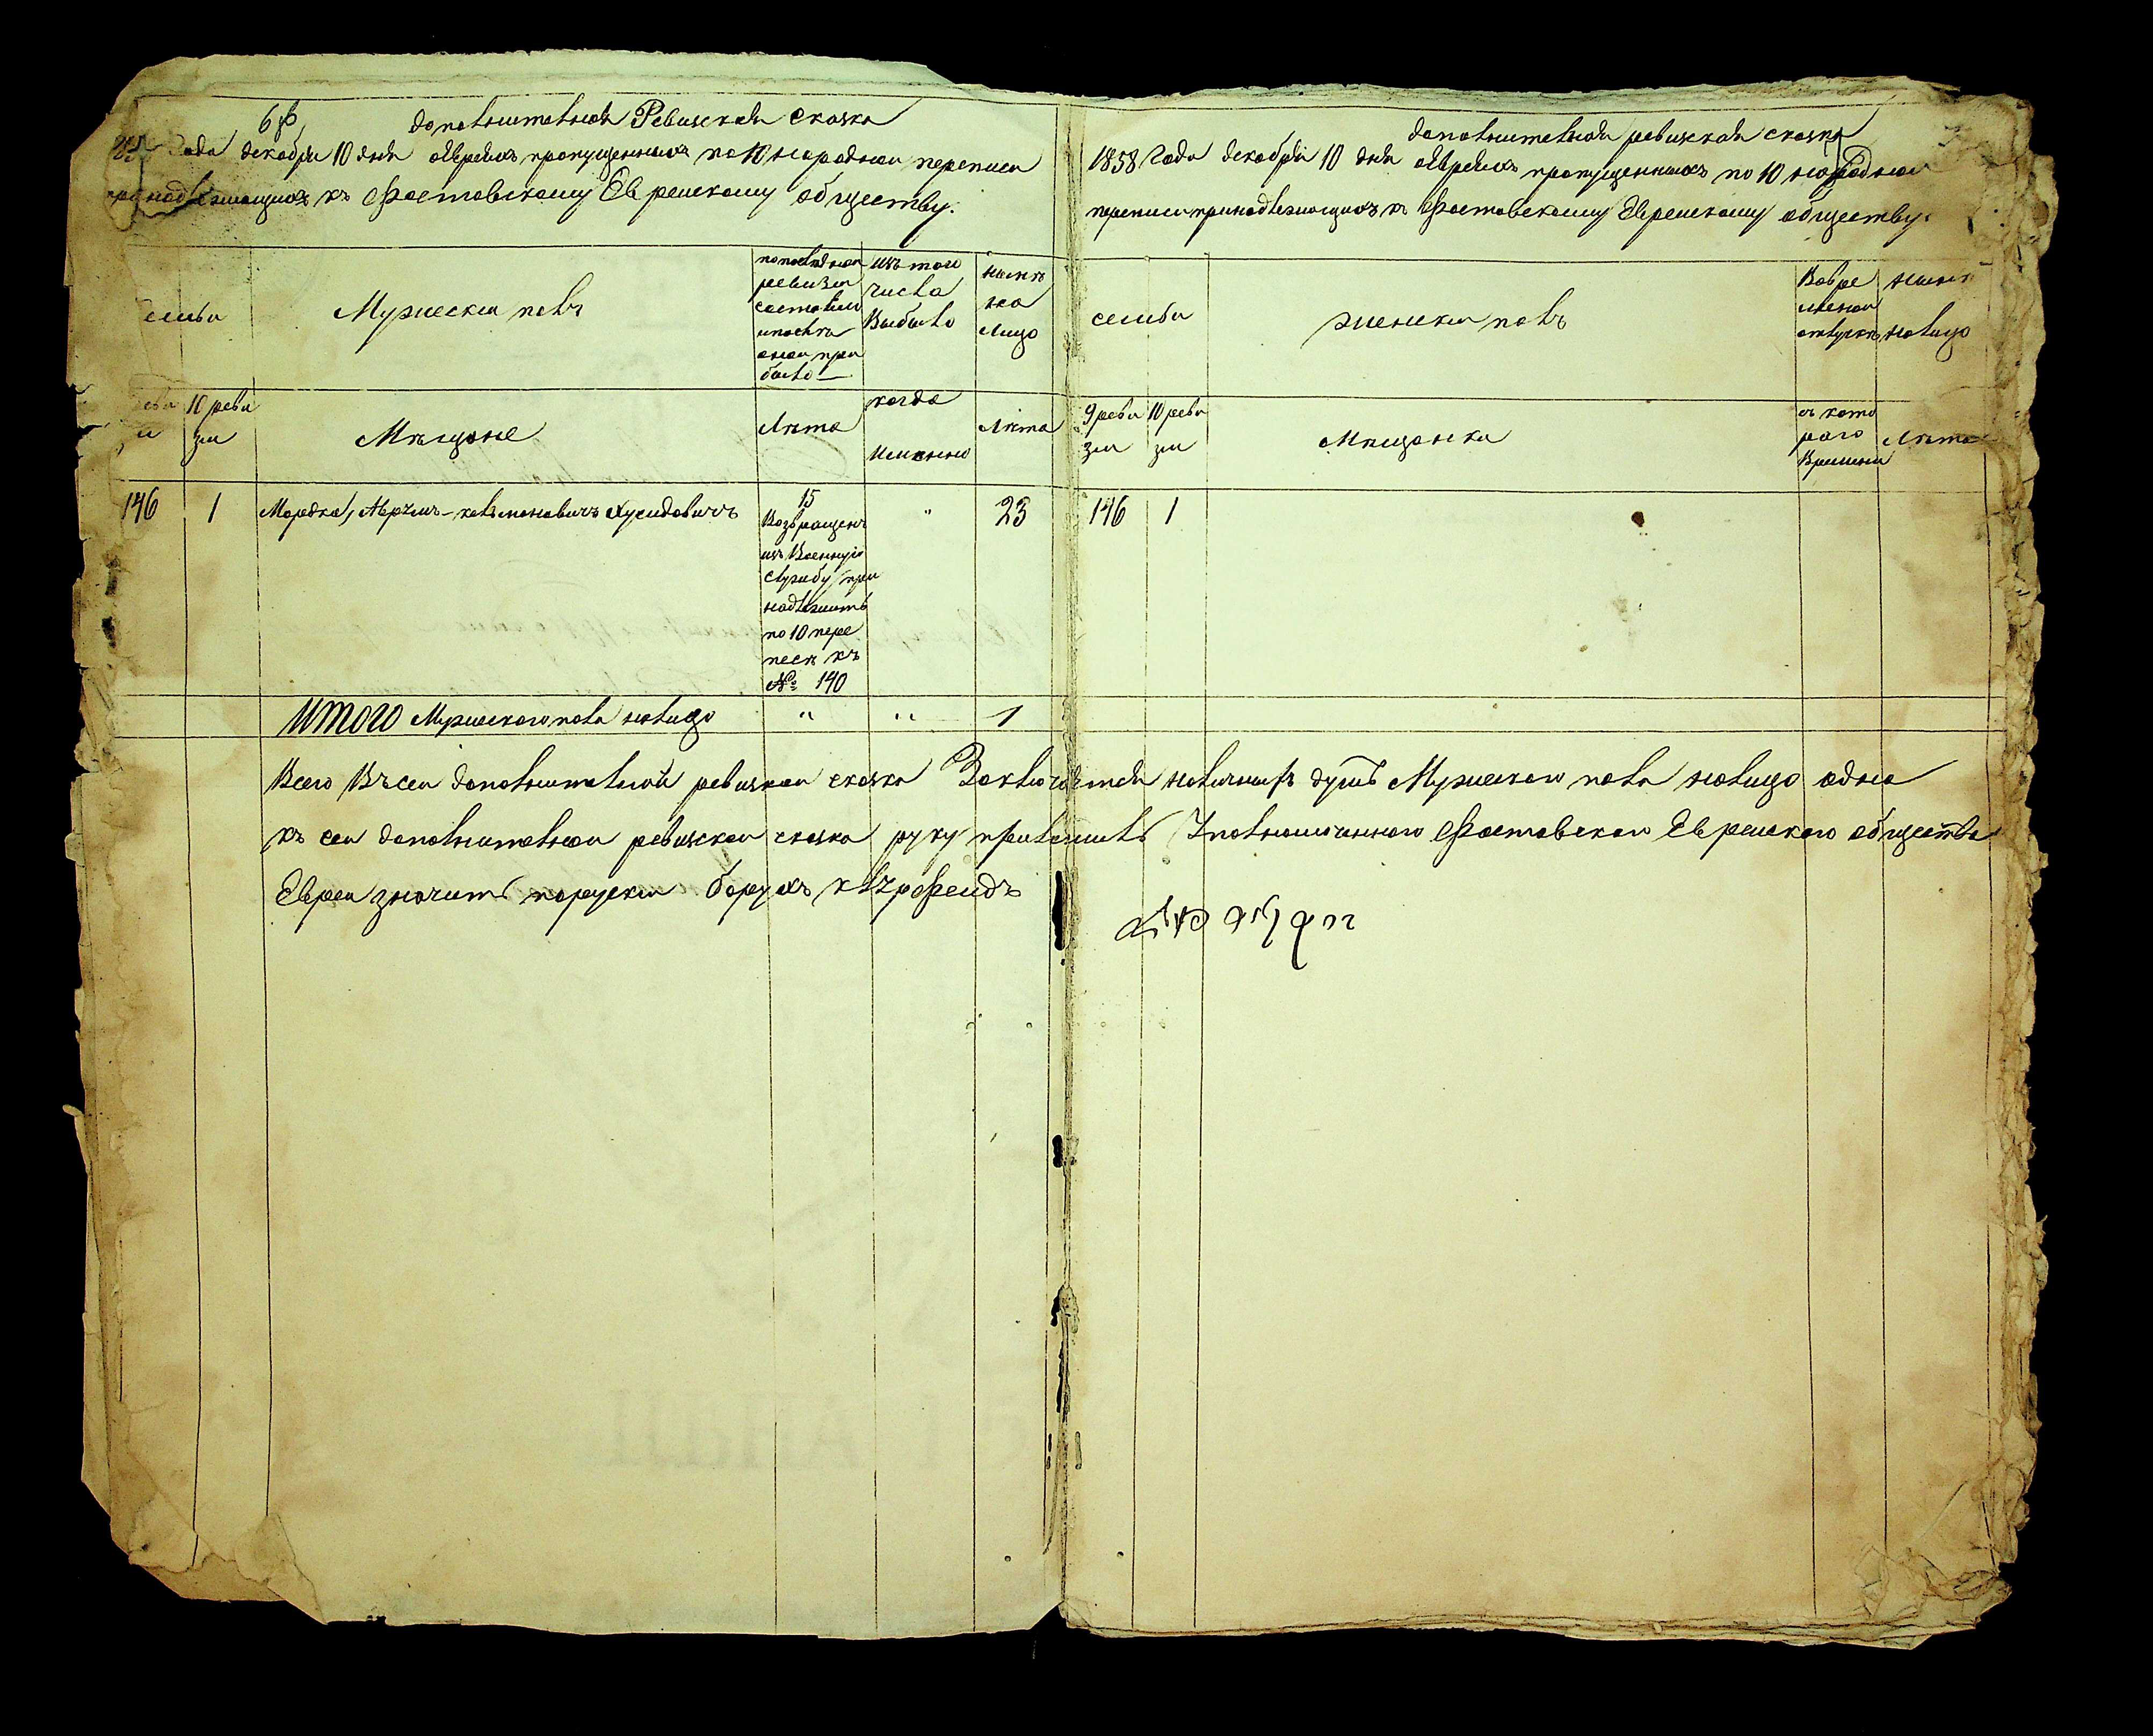 дополнительная Ревизская сказка
года декабря 10 дня оЕвреяхъ пропущенныхъ по 10 народной переписи
принадлежащихъ къ Фастовскому Еврейскому обществу.
семьи
Мужески полъ
попоследней ревизии состояло ипосля оной при было
изъ того числа Выбыло
ныне на лицо
10 реви зiи
Мещане
Лета
когда Именно
Лета
146 1 Мордко, Аврумъ-Кельмановичъ Хусидовичъ 15 " 23
Возвращенъ
изъ Военную
Службу при
надлежитъ
по 10 пере
песи къ
№ 140
ИТОГО Мужескаго пола налицо " " 1
дополнительная ревизская сказка
1858 Года декабря 10 дня оЕвреяхъ пропущенныхъ по 10 народной
переписи принадлежащихъ къ Фастовскому Еврейскому обществу.
семьи
женски полъ
Вовре менной отлучке
ныне налицо
9 реви зiи
10 реви зiи
Мещанки
съ кото раго Времени
Лета
146 1
Всего Въсей дополнительной ревизкой сказки Заключается наличныхъ душъ Мужескаго пола налицо одна
къ сей дополнительной ревизской сказки руку приложилъ Уполномоченного Фастовскаго Еврейскаго общества
Евреи значитъ поруски Борухъ